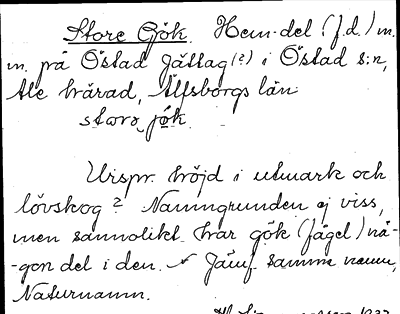 Store Gök. Hem.del (f.d.) m.
m. på Östad Jättag (?) i Östad s:n,
Ale härad, Älfsborgs län
storə jök.
Urspr. höjd i utmark och
lövskog? Namngrunden ej viss,
men sannolikt har gök (fågel) nå-
-gon del i den. Jämf. samma namn,
Naturnamn.